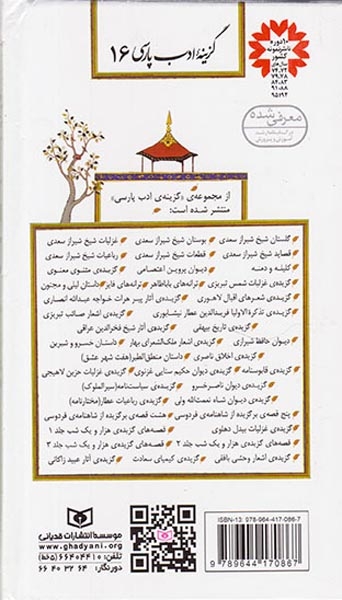 گزینهٔ ادب پارسی ۱۶
۱۰ دوره
ناشر نمونه
کشور
سال‌های
۷۴،۷۲
۷۹،۷۸
۸۴،۸۳
۹۱،۸۸
۹۵،۹۴
معرفی شده
از مجموعه‌ی «گزینه‌ی ادب پارسی»
منتشر شده است:
گلستان شیخ شیراز سعدی بوستان شیخ شیراز سعدی غزلیات شیخ شیراز سعدی
قصاید شیخ شیراز سعدی قطعات شیخ شیراز سعدی رباعیات شیخ شیراز سعدی
کلیله و دمنه دیوان پروین اعتصامی گزیده‌ی مثنوی معنوی
گزیده‌ی غزلیات شمس تبریزی ترانه‌های باباطاهر ترانه‌های فایز داستان لیلی و مجنون
گزیده‌ی شعرهای اقبال لاهوری گزیده‌ی آثار پیر هرات خواجه عبدالله انصاری
گزیده‌ی تذکرةالاولیا فریدالدین عطار نیشابوری گزیده‌ی اشعار صائب تبریزی
گزیده‌ی تاریخ بیهقی گزیده‌ی آثار شیخ فخرالدین عراقی
دیوان حافظ شیرازی گزیده‌ی اشعار ملک‌الشعرای بهار داستان خسرو و شیرین
گزیده‌ی اخلاق ناصری داستان منطق‌الطیر (هفت شهر عشق)
گزیده‌ی قابوسنامه گزیده‌ی دیوان حکیم سنایی غزنوی گزیده‌ی غزلیات حزین لاهیجی
گزیده‌ی دیوان ناصرخسرو گزیده‌ی سیاست‌نامه (سیرالملوک)
گزیده‌ی دیوان شاه نعمت‌الله ولی گزیده‌ی رباعیات عطار (مختارنامه)
پنج قصه‌ی برگزیده از شاهنامه‌ی فردوسی هشت قصه‌ی برگزیده از شاهنامه‌ی فردوسی
گزیده‌ی غزلیات بیدل دهلوی قصه‌های گزیده‌ی هزار و یک شب جلد ۱
قصه‌های گزیده‌ی هزار و یک شب جلد ۲ قصه‌های گزیده‌ی هزار و یک شب جلد ۳
گزیده‌ی اشعار وحشی بافقی گزیده‌ی کیمیای سعادت گزیده‌ی آثار عبید زاکانی
ISBN-13: 978-964-417-086-7
9 789644 170867
موسسه انتشارات قدیانی
www.ghadyani.org
تلفن: ۶۶۴۰۴۴۱۰ (۵خط)
دورنگار: ۶۶۴۰۳۲۶۴